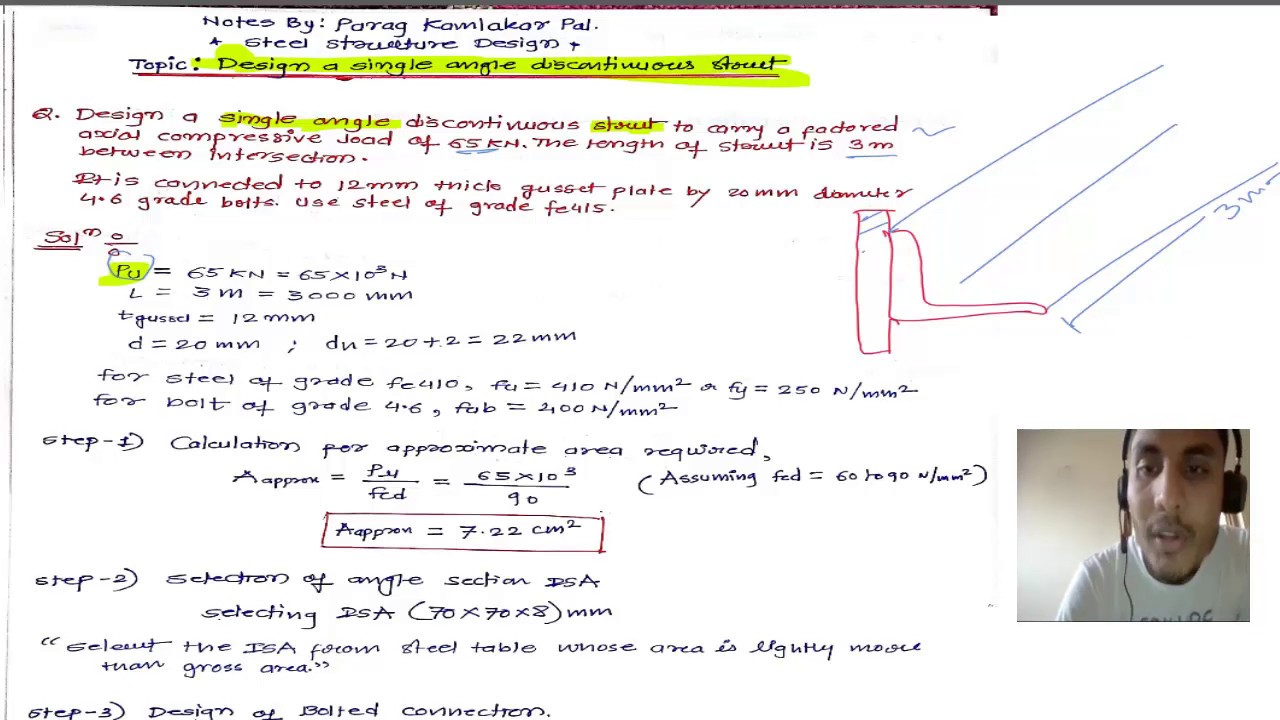 Notes By: Parag Kamlakar Pal.
* Steel Structure Design *
Topic: Design a single angle discontinuous strut
Q. Design a single angle discontinuous strut to carry a factored
axial compressive load of 65 KN. The length of strut is 3m
between intersection.
It is connected to 12mm thick gusset plate by 20mm diameter
4.6 grade bolts. Use steel of grade fe415.
Solⁿ
Pu = 65 KN = 65×10³N
L = 3 m = 3000 mm
tgusset = 12 mm
d = 20 mm ; dh = 20+2 = 22 mm
for steel of grade fe410, fu = 410 N/mm² or fy = 250 N/mm²
for bolt of grade 4.6, fub = 400 N/mm²
Step-1) Calculation for approximate area required,
Aapprox = Pu/fcd = 65×10³/90 (Assuming fcd = 60 to 90 N/mm²)
Aapprox = 7.22 cm²
Step-2) Selection of angle section ISA
selecting ISA (70×70×8) mm
"Select the ISA from steel table whose area is lightly more
than gross area."
Step-3) Design of Bolted connection.
3m